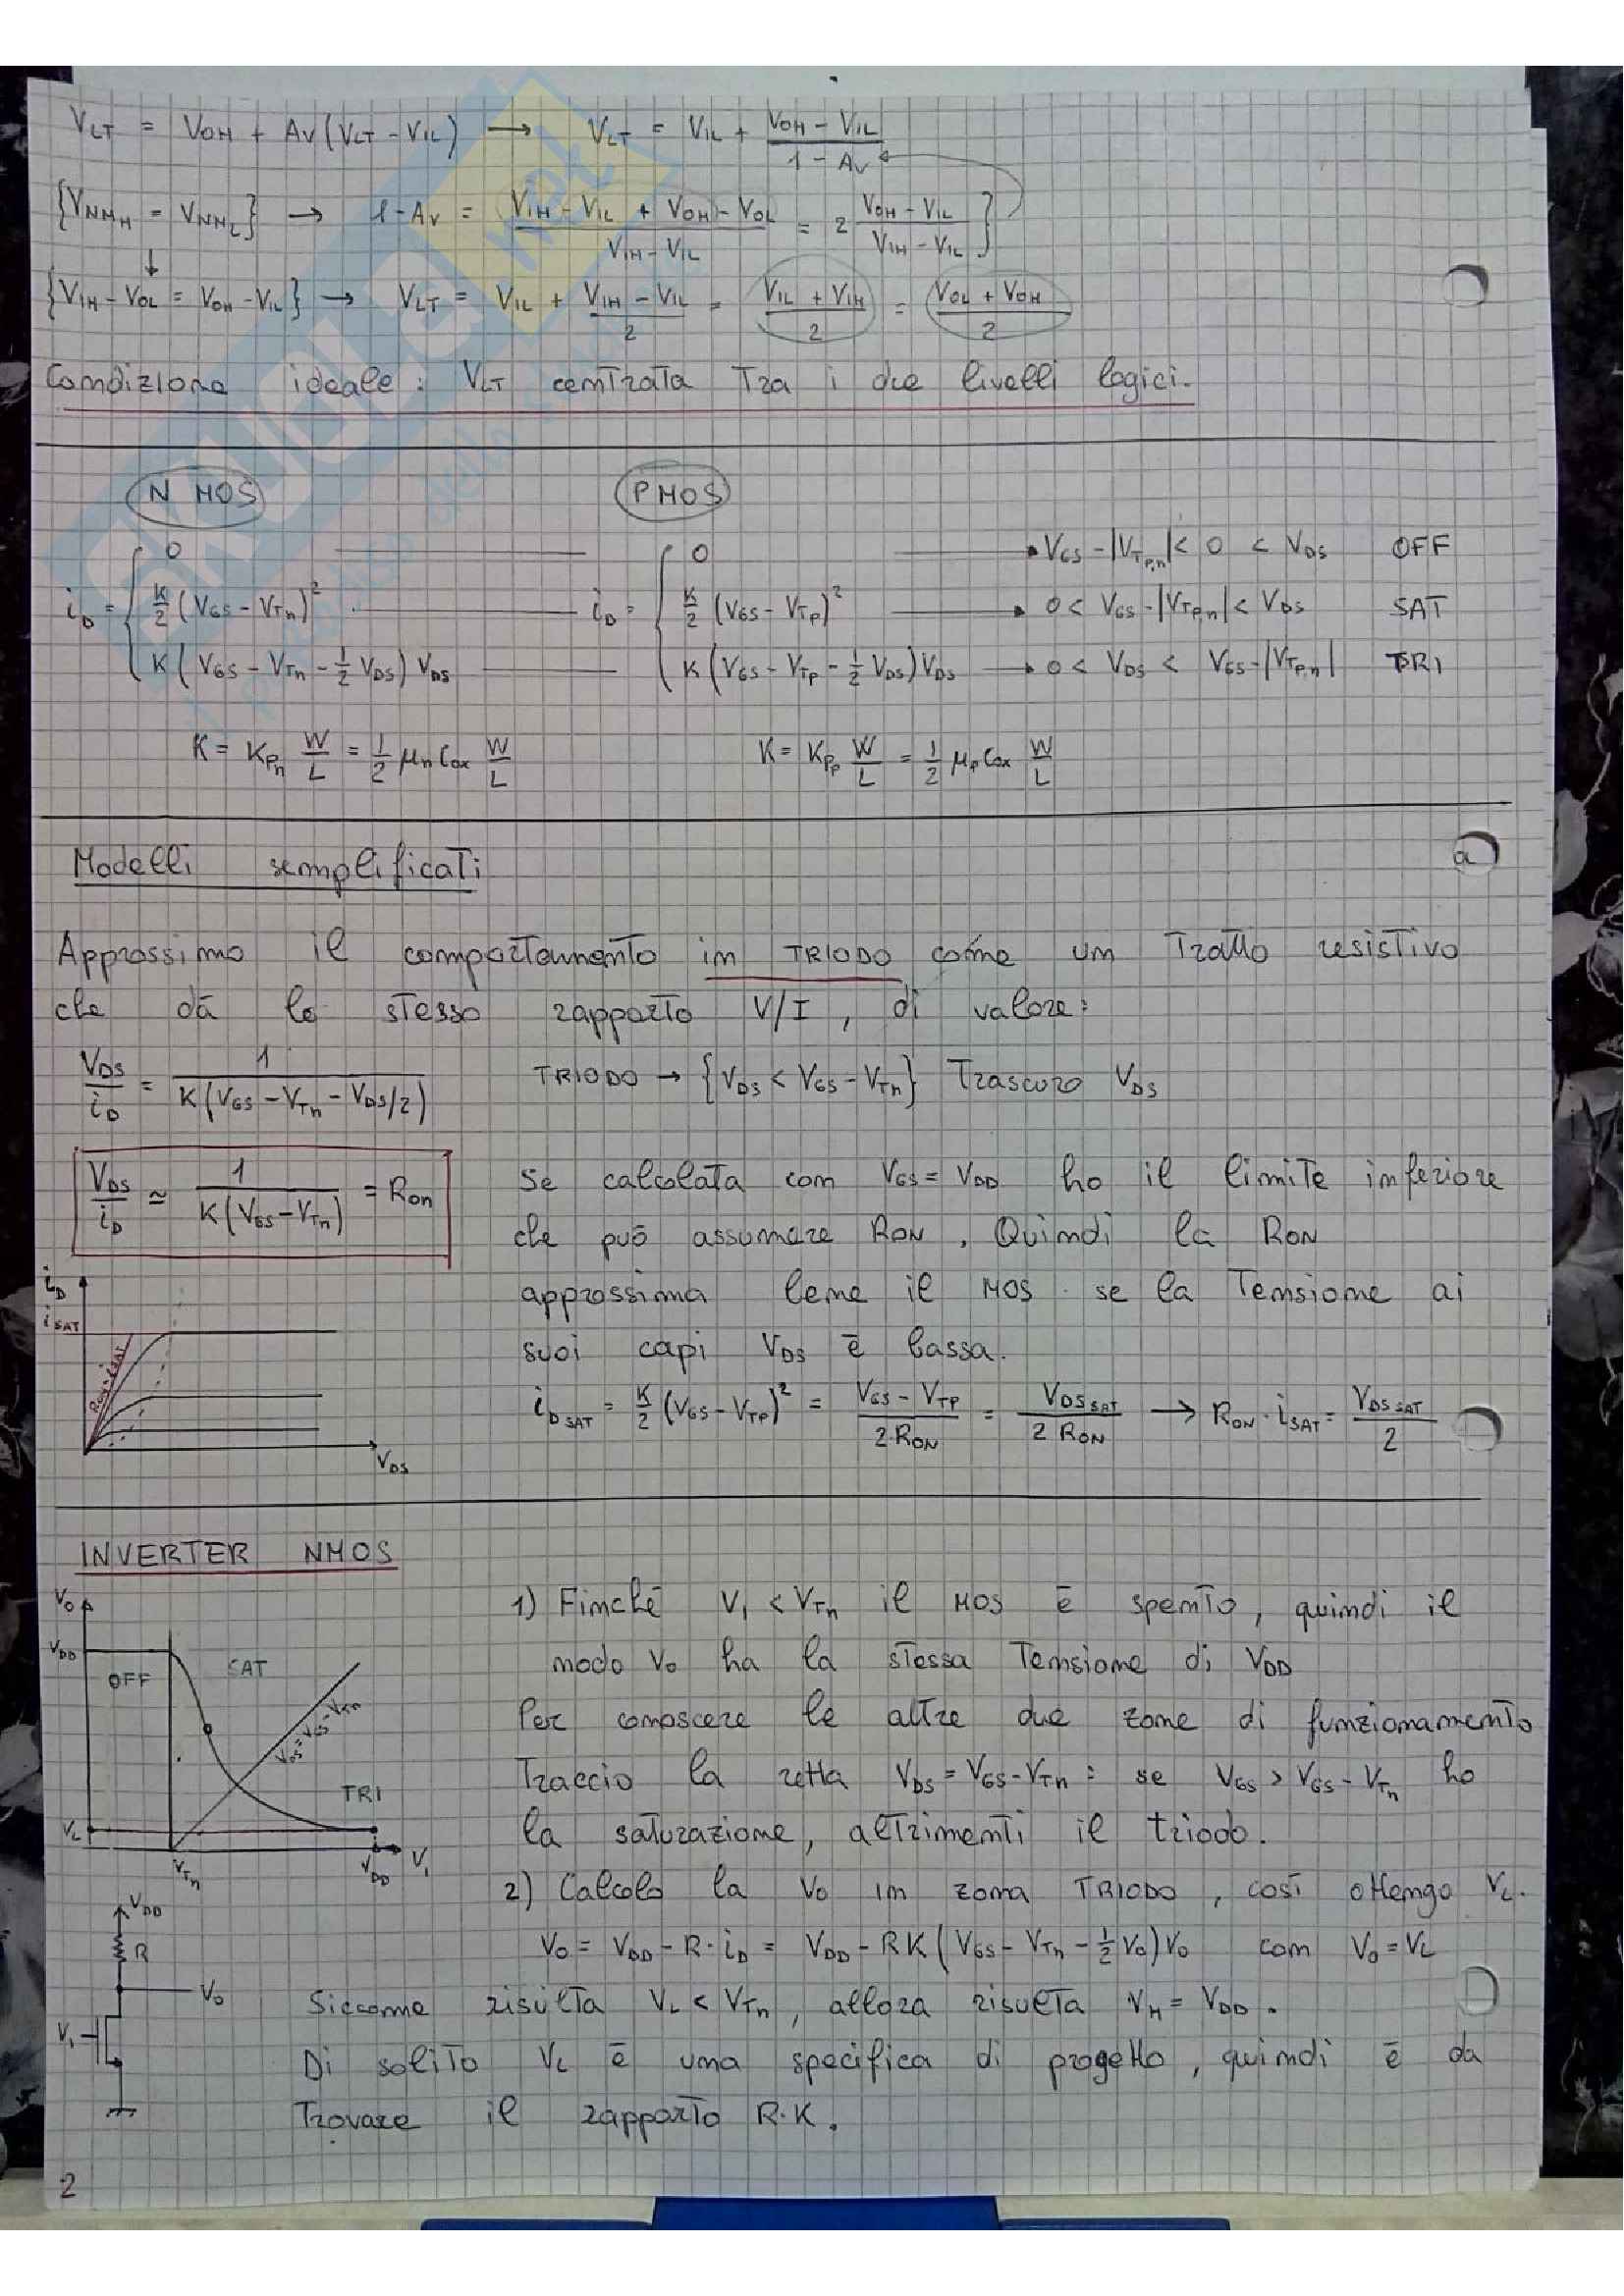 V_LT = V_OH + A_V (V_LT - V_IL) → V_LT = V_IL + (V_OH - V_IL)/(1 - A_V)
{V_NMH = V_NML} → 1 - A_V = (V_IH - V_IL + V_OH - V_OL)/(V_IH - V_IL) = 2 (V_OH - V_IL)/(V_IH - V_IL)}
↓
{V_IH - V_OL = V_OH - V_IL} → V_LT = V_IL + (V_IH - V_IL)/2 = (V_IL + V_IH)/2 = (V_OL + V_OH)/2
Condizione ideale: V_LT centrata tra i due livelli logici.
N MOS PMOS
0 0 → V_GS - |V_Tp,n| < 0 < V_DS OFF
i_D = { K/2 (V_GS - V_Tn)² i_D = { K/2 (V_GS - V_Tp)² → 0 < V_GS - |V_Tp,n| < V_DS SAT
K (V_GS - V_Tn - 1/2 V_DS) V_DS K (V_GS - V_Tp - 1/2 V_DS) V_DS → 0 < V_DS < V_GS - |V_Tp,n| TRI
K = K_Pn W/L = 1/2 μ_n C_ox W/L K = K_Pp W/L = 1/2 μ_p C_ox W/L
Modelli semplificati
a
Approssimo il comportamento in TRIODO come un tratto resistivo
che dà lo stesso rapporto V/I, di valore:
V_DS/i_D = 1/(K (V_GS - V_Tn - V_DS/2)) TRIODO → {V_DS < V_GS - V_Tn} Trascuro V_DS
V_DS/i_D ≃ 1/(K (V_GS - V_Tn)) = R_ON
Se calcolata con V_GS = V_DD ho il limite inferiore
che può assumere R_ON, Quindi la R_ON
approssima bene il MOS se la tensione ai
suoi capi V_DS è bassa.
i_DSAT = K/2 (V_GS - V_TP)² = (V_GS - V_TP)/(2·R_ON) = V_DSSAT/(2 R_ON) → R_ON · i_SAT = V_DSSAT/2
i_D
i_SAT
R_ON·i_SAT
V_DS
INVERTER NMOS
1) Finché V_I < V_Tn il MOS è spento, quindi il
nodo V_O ha la stessa tensione di V_DD
Per conoscere le altre due zone di funzionamento
Traccio la retta V_DS = V_GS - V_Tn : se V_GS > V_GS - V_Tn ho
la saturazione, altrimenti il triodo.
V_O
V_DD
OFF SAT
V_DS = V_GS - V_Tn
TRI
V_L
V_Tn V_DD V_I
2) Calcolo la V_O in zona TRIODO, così ottengo V_L.
V_O = V_DD - R·i_D = V_DD - RK (V_GS - V_Tn - 1/2 V_O) V_O con V_O = V_L
Siccome risulta V_L < V_Tn, allora risulta V_H = V_DD.
Di solito V_L è una specifica di progetto, quindi è da
Trovare il rapporto R·K.
V_DD
R
V_O
V_I
2